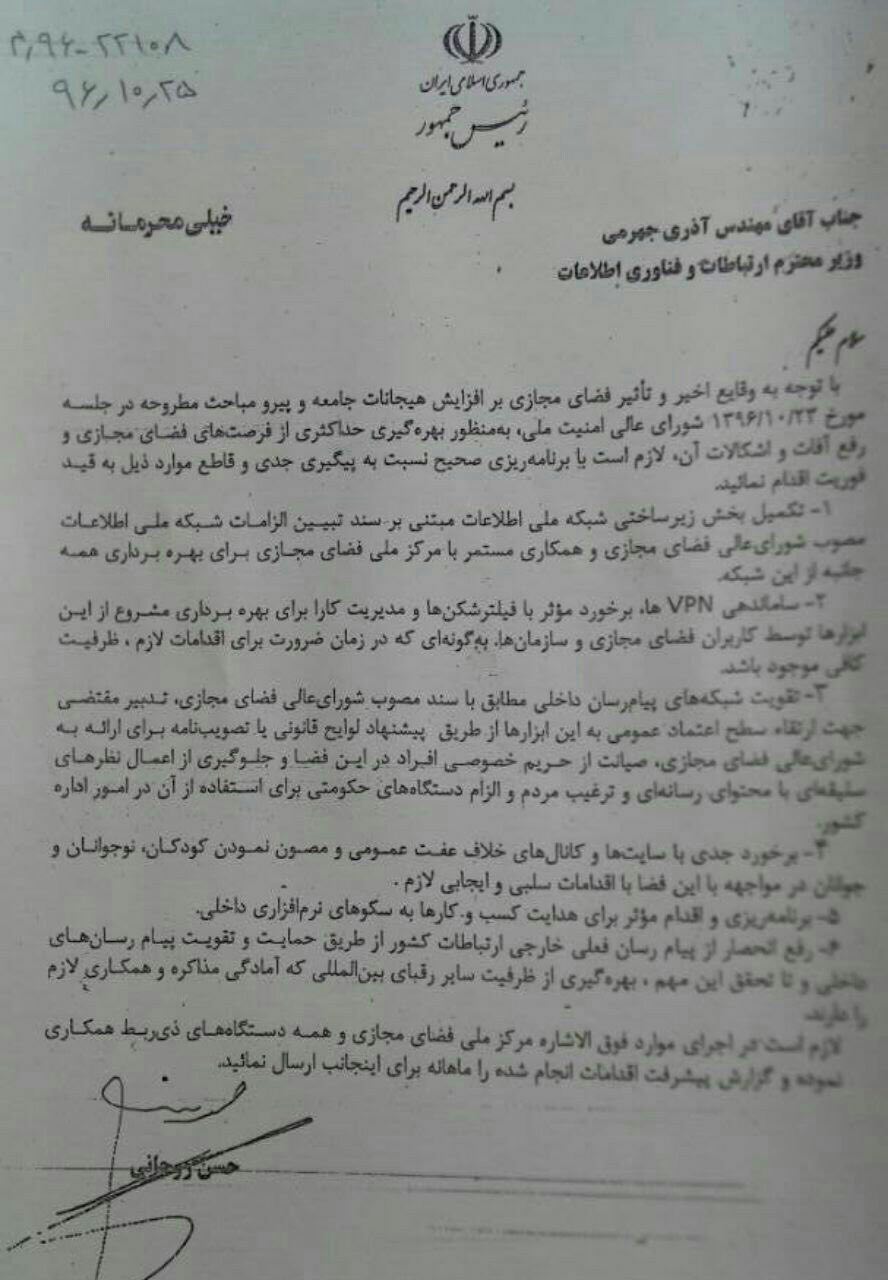 م/۹۶-۲۲۱۰۸
۹۶/۱۰/۲۵
جمهوری اسلامی ایران
رئیس جمهور
بسم الله الرحمن الرحیم
خیلی محرمانه
جناب آقای مهندس آذری جهرمی
وزیر محترم ارتباطات و فناوری اطلاعات
سلام علیکم
با توجه به وقایع اخیر و تأثیر فضای مجازی بر افزایش هیجانات جامعه و پیرو مباحث مطروحه در جلسه
مورخ ۱۳۹۶/۱۰/۲۳ شورای عالی امنیت ملی، به‌منظور بهره‌گیری حداکثری از فرصت‌های فضای مجازی و
رفع آفات و اشکالات آن، لازم است با برنامه‌ریزی صحیح نسبت به پیگیری جدی و قاطع موارد ذیل به قید
فوریت اقدام نمائید.
۱- تکمیل بخش زیرساختی شبکه ملی اطلاعات مبتنی بر سند تبیین الزامات شبکه ملی اطلاعات
مصوب شورای‌عالی فضای مجازی و همکاری مستمر با مرکز ملی فضای مجازی برای بهره برداری همه
جانبه از این شبکه.
۲- ساماندهی VPN ها، برخورد مؤثر با فیلترشکن‌ها و مدیریت کارا برای بهره برداری مشروع از این
ابزارها توسط کاربران فضای مجازی و سازمان‌ها، به‌گونه‌ای که در زمان ضرورت برای اقدامات لازم ، ظرفیت
کافی موجود باشد.
۳- تقویت شبکه‌های پیام‌رسان داخلی مطابق با سند مصوب شورای‌عالی فضای مجازی، تدبیر مقتضی
جهت ارتقاء سطح اعتماد عمومی به این ابزارها از طریق پیشنهاد لوایح قانونی یا تصویب‌نامه برای ارائه به
شورای‌عالی فضای مجازی، صیانت از حریم خصوصی افراد در این فضا و جلوگیری از اعمال نظرهای
سلیقه‌ای با محتوای رسانه‌ای و ترغیب مردم و الزام دستگاه‌های حکومتی برای استفاده از آن در امور اداره
کشور.
۴- برخورد جدی با سایت‌ها و کانال‌های خلاف عفت عمومی و مصون نمودن کودکان، نوجوانان و
جوانان در مواجهه با این فضا با اقدامات سلبی و ایجابی لازم .
۵- برنامه‌ریزی و اقدام مؤثر برای هدایت کسب و کارها به سکوهای نرم‌افزاری داخلی.
۶- رفع انحصار از پیام رسان فعلی خارجی ارتباطات کشور از طریق حمایت و تقویت پیام رسان‌های
داخلی و تا تحقق این مهم ، بهره‌گیری از ظرفیت سایر رقبای بین‌المللی که آمادگی مذاکره و همکاری لازم
را دارند.
لازم است در اجرای موارد فوق الاشاره مرکز ملی فضای مجازی و همه دستگاه‌های ذی‌ربط همکاری
نموده و گزارش پیشرفت اقدامات انجام شده را ماهانه برای اینجانب ارسال نمائید.
حسن روحانی